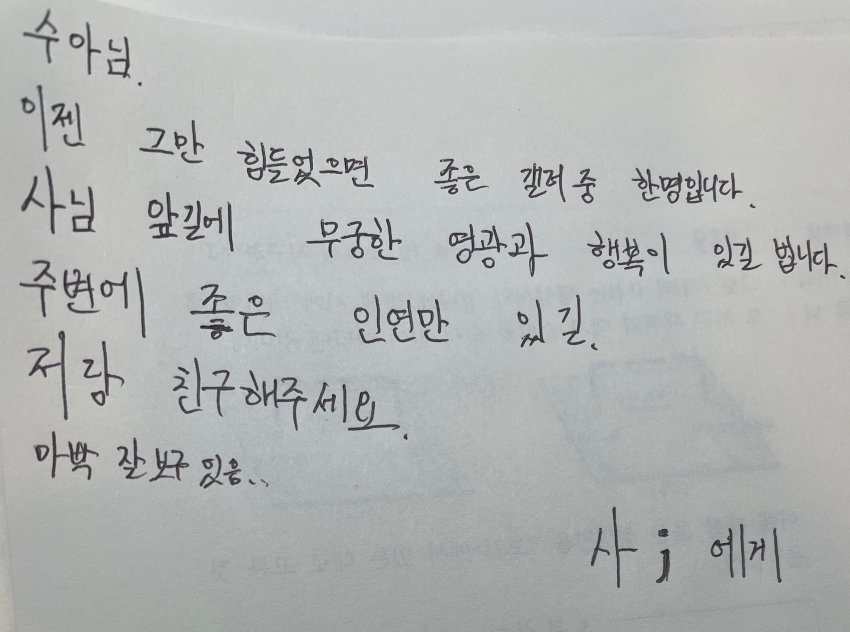 수아님.
이젠 그만 힘들었으면 좋은 갤러 중 한명입니다.
사님 앞길에 무궁한 영광과 행복이 있길 빕니다.
주변에 좋은 인연만 있길.
저랑 친구해주세요.
마박 잘보구 있음..
사; 에게